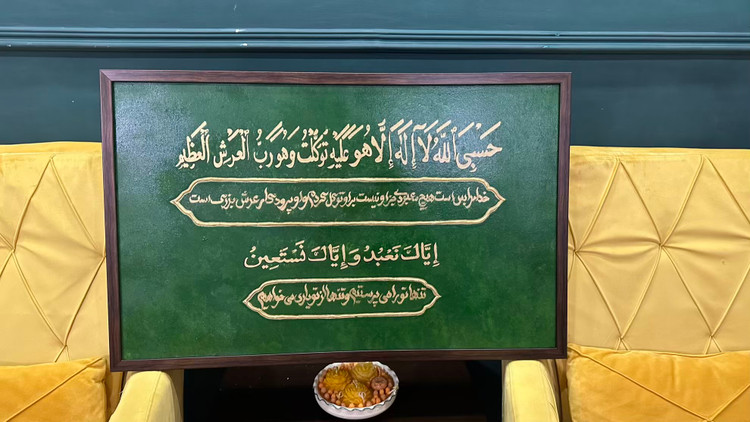 حَسْبِيَ ٱللَّهُ لَآ إِلَٰهَ إِلَّا هُوَ عَلَيْهِ تَوَكَّلْتُ وَهُوَ رَبُّ الْعَرْشِ الْعَظِيمِ
خدا مرا بس است هیچ معبودی جز او نیست بر او توکل کردم و او پروردگار عرش بزرگ است
إِيَّاكَ نَعْبُدُ وَإِيَّاكَ نَسْتَعِينُ
تنها تو را می پرستیم و تنها از تو یاری می خواهیم